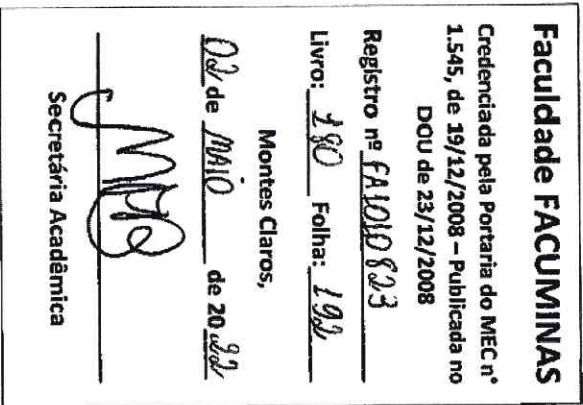 Faculdade FACUMINAS
Credenciada pela Portaria do MEC nº
1.545, de 19/12/2008 – Publicada no
DOU de 23/12/2008
Registro nº FA1010823
Livro: 180 Folha: 192
Montes Claros,
02 de MAIO de 2022
Secretária Acadêmica